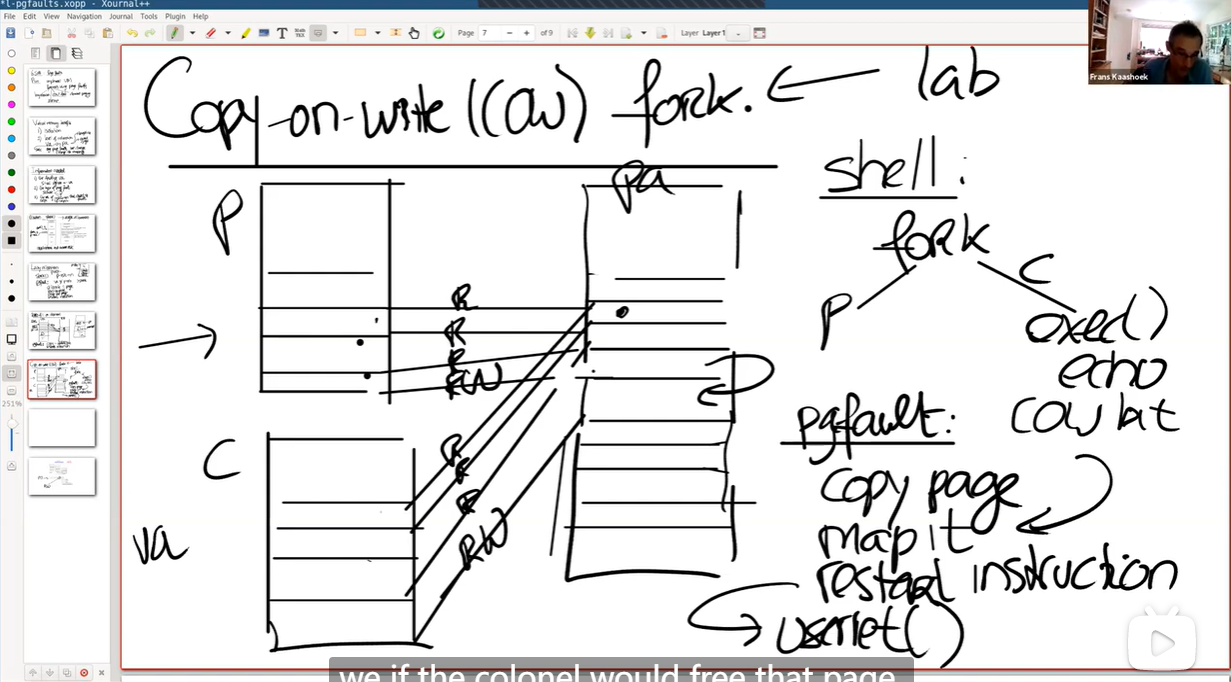 *l-pgfaults.xopp - Xournal++
File Edit View Navigation Journal Tools Plugin Help
Page 7 of 9 Layer Layer 1
251%
Frans Kaashoek
Copy-on-write (COW) fork. lab
shell:
fork
P C
exec()
echo
P
pa
R
R
R
RW
C
R
R
R
RW
va
pgfault: COW bit
copy page
map it
restart instruction
userret()
we if the colonel would free that page